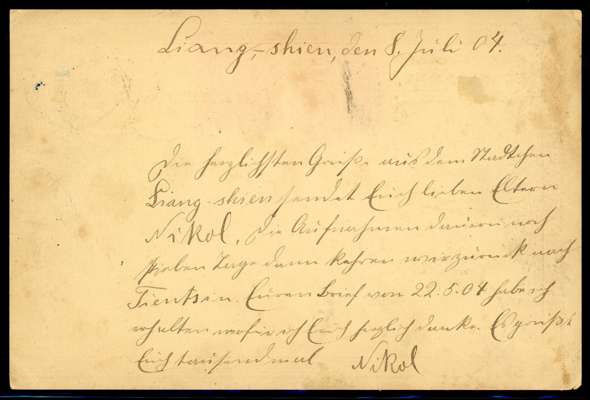 Liang-shien, den 8. Juli 04.
Die herzlichsten Grüße aus dem Städtchen
Liang-shien sendet Euch lieben Eltern
Nikol. Die Aufnahmen dauern noch
sieben Tage dann kehren wir zurück nach
Tientsin. Euren Brief von 22.5.04 habe ich
erhalten wofür ich Euch herzlich danke. Es grüßt
Euch tausendmal Nikol